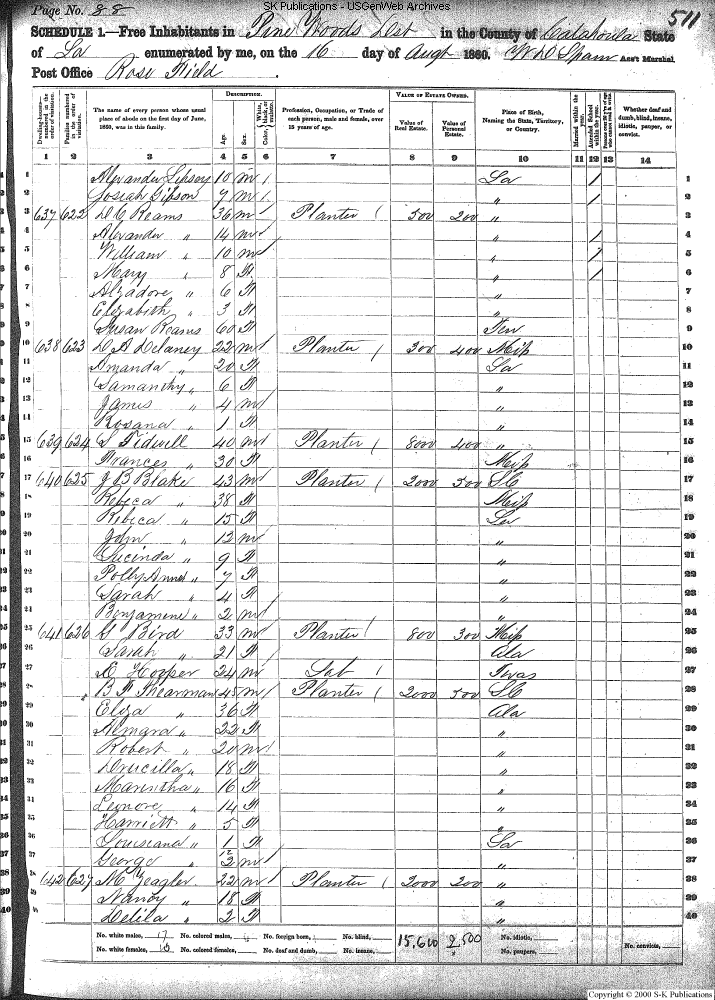 SK Publications - USGenWeb Archives
Page No. 88
511
SCHEDULE 1.—Free Inhabitants in Pine Woods Dst in the County of Catahoula State
of La enumerated by me, on the 16 day of Augt 1860. W D Spann Ass't Marshal
Post Office Rose Field.
Dwelling-houses—numbered in the order of visitation.
Families numbered in the order of visitation.
The name of every person whose usual place of abode on the first day of June, 1860, was in this family.
DESCRIPTION.
Age.
Sex.
Color, White, black, or mulatto.
Profession, Occupation, or Trade of each person, male and female, over 15 years of age.
VALUE OF ESTATE OWNED.
Value of Real Estate.
Value of Personal Estate.
Place of Birth, Naming the State, Territory, or Country.
Married within the year.
Attended School within the year.
Whether deaf and dumb, blind, insane, idiotic, pauper, or convict.
1 2 3 4 5 6 7 8 9 10 11 12 13 14
1 Alexander Gibson 10 m / La / 1
2 Josiah Gibson 7 m / " / 2
3 637 622 D C Reams 36 m / Planter / 500 200 " 3
4 Alexander " 14 m / " / 4
5 William " 10 m / " / 5
6 Mary " 8 F " / 6
7 " 6 F " 7
8 Elizabith " 3 F " 8
9 Susan Reams 60 F Ten 9
10 638 623 D A Delaney 22 m / Planter / 300 400 Miss 10
11 Amanda " 20 F La 11
12 Samanthy " 6 F " 12
13 James " 4 m / " 13
14 Rosana " 1 F " 14
15 639 624 S Tidwell 40 m Planter / 8000 400 " 15
16 Frances " 30 F Miss 16
17 640 625 J B Blake 43 m / Planter / 2000 500 SC 17
18 Rebeca " 38 F Miss 18
19 Rebeca " 15 F La 19
20 John " 12 m " 20
21 Lucinda " 9 F " 21
22 Polly Anne " 7 F " 22
23 Sarah " 4 F " 23
24 Benjamine " 2 m / " 24
25 641 626 G Bird 33 m / Planter / 800 300 Miss 25
26 Sarah " 21 F Ala 26
27 Hooper 24 m Lab / Texas 27
28 B F Thearman 45 m / Planter / 2000 500 SC 28
29 Eliza " 36 F Ala 29
30 Almara " 22 F " 30
31 Robert " 20 m / " 31
32 Drucilla " 18 F " 32
33 " 16 F " 33
34 Lenore " 14 F " 34
35 Harriett " 5 F " 35
36 Louisiana " 1 F La 36
37 George 2/12 m / " 37
38 642 627 M Zeagler 22 m / Planter / 2000 200 " 38
39 Nancy " 18 F " 39
40 Delila " 2 F " 40
No. white males, 17 No. colored males, No. foreign born, No. blind, 15,600 2,500 No. idiotic,
No. white females, No. colored females, No. deaf and dumb, No. insane, No. paupers, No. convicts,
Copyright © 2000 S-K Publications